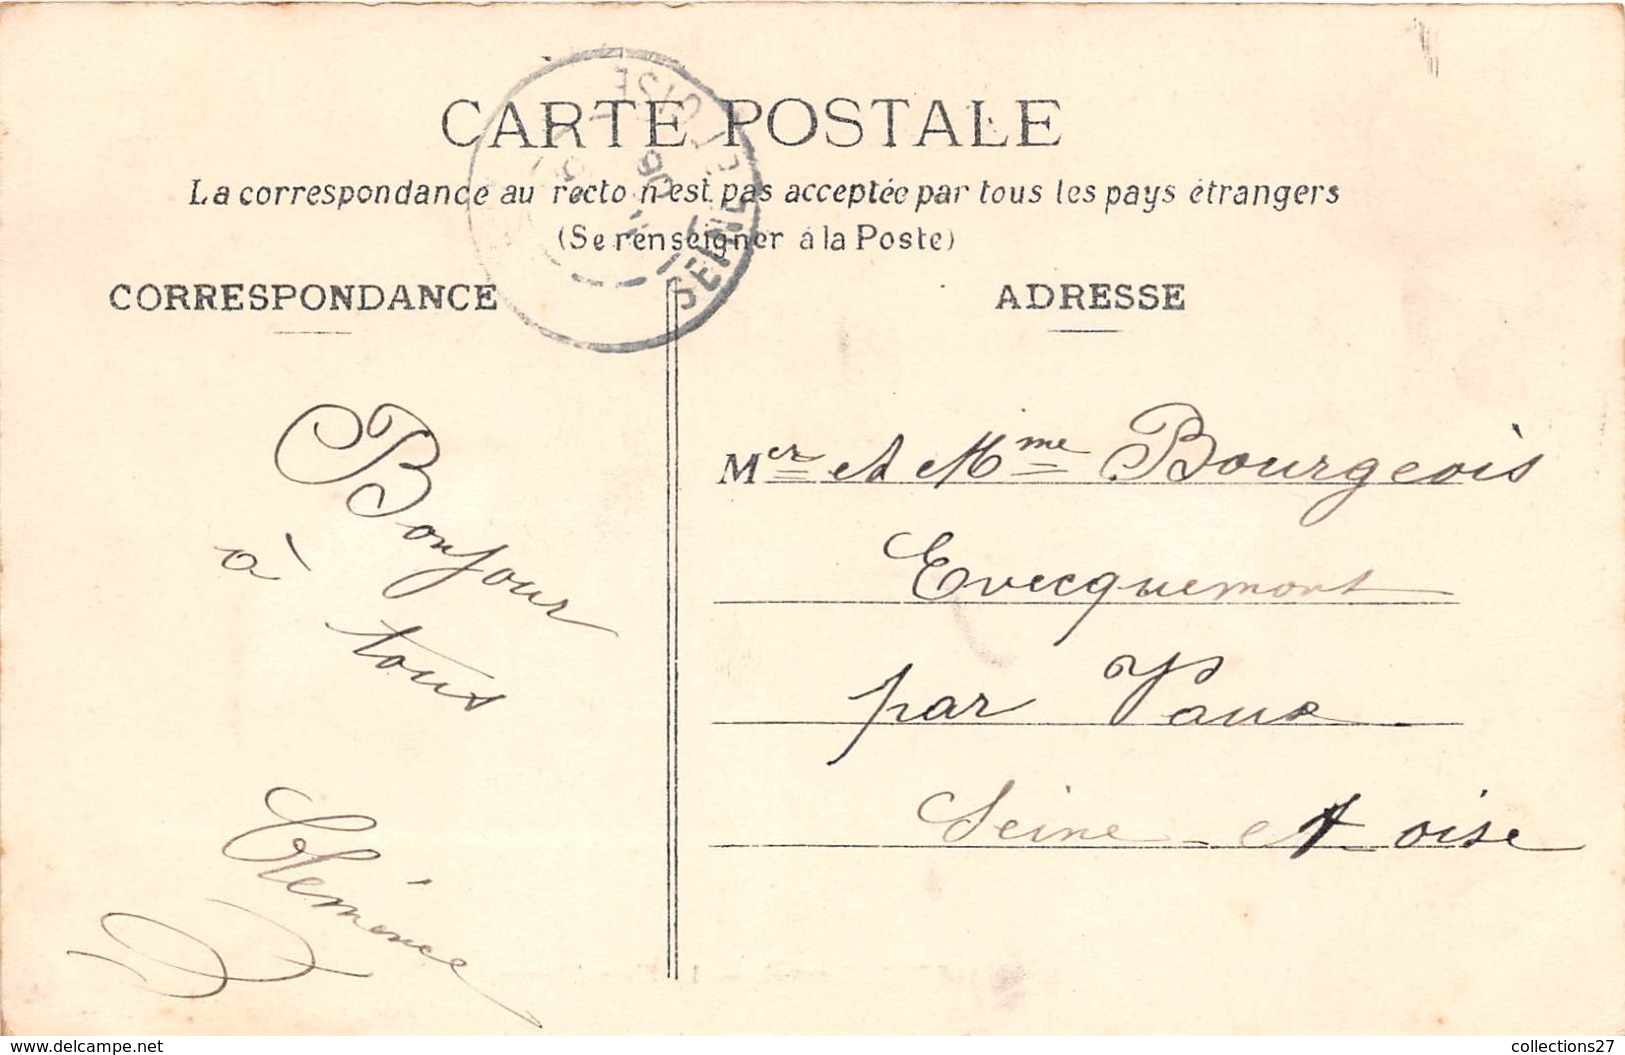 CARTE POSTALE
La correspondance au recto n'est pas acceptée par tous les pays étrangers
(Se renseigner à la Poste)
CORRESPONDANCE
Bonjour
à
tous
Clémence
ADRESSE
Mer et Mme Bourgeois
Evecquemont
par Vaux
Seine et oise
SEINE ET OISE
06
www.delcampe.net
collections27